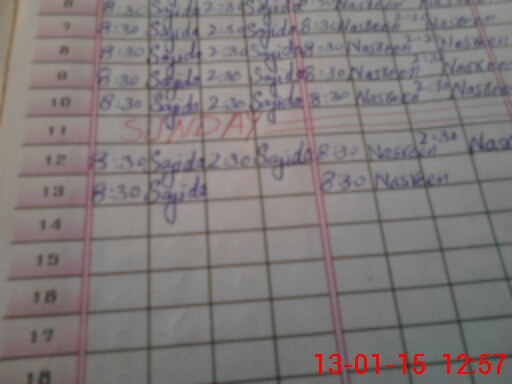 6 8:30 Sajida 2:30 Sajida 8:30 Nasreen Nasreen
7 8:30 Sajida 2:30 Sajida 8:30 Nasreen 2:30 Nasreen
8 8:30 Sajida 2:30 Sajida 8:30 Nasreen Nasreen
9 8:30 Sajida 2:30 Sajida 8:30 Nasreen 2:30 Nasreen
10 8:30 Sajida 2:30 Sajida 8:30 Nasreen 2:30 Nasreen
11 SUNDAY
12 8:30 Sajida 2:30 Sajida 8:30 Nasreen 2:30 Nasr
13 8:30 Sajida 8:30 Nasreen
14
15
16
17
18
13-01-15 12:57